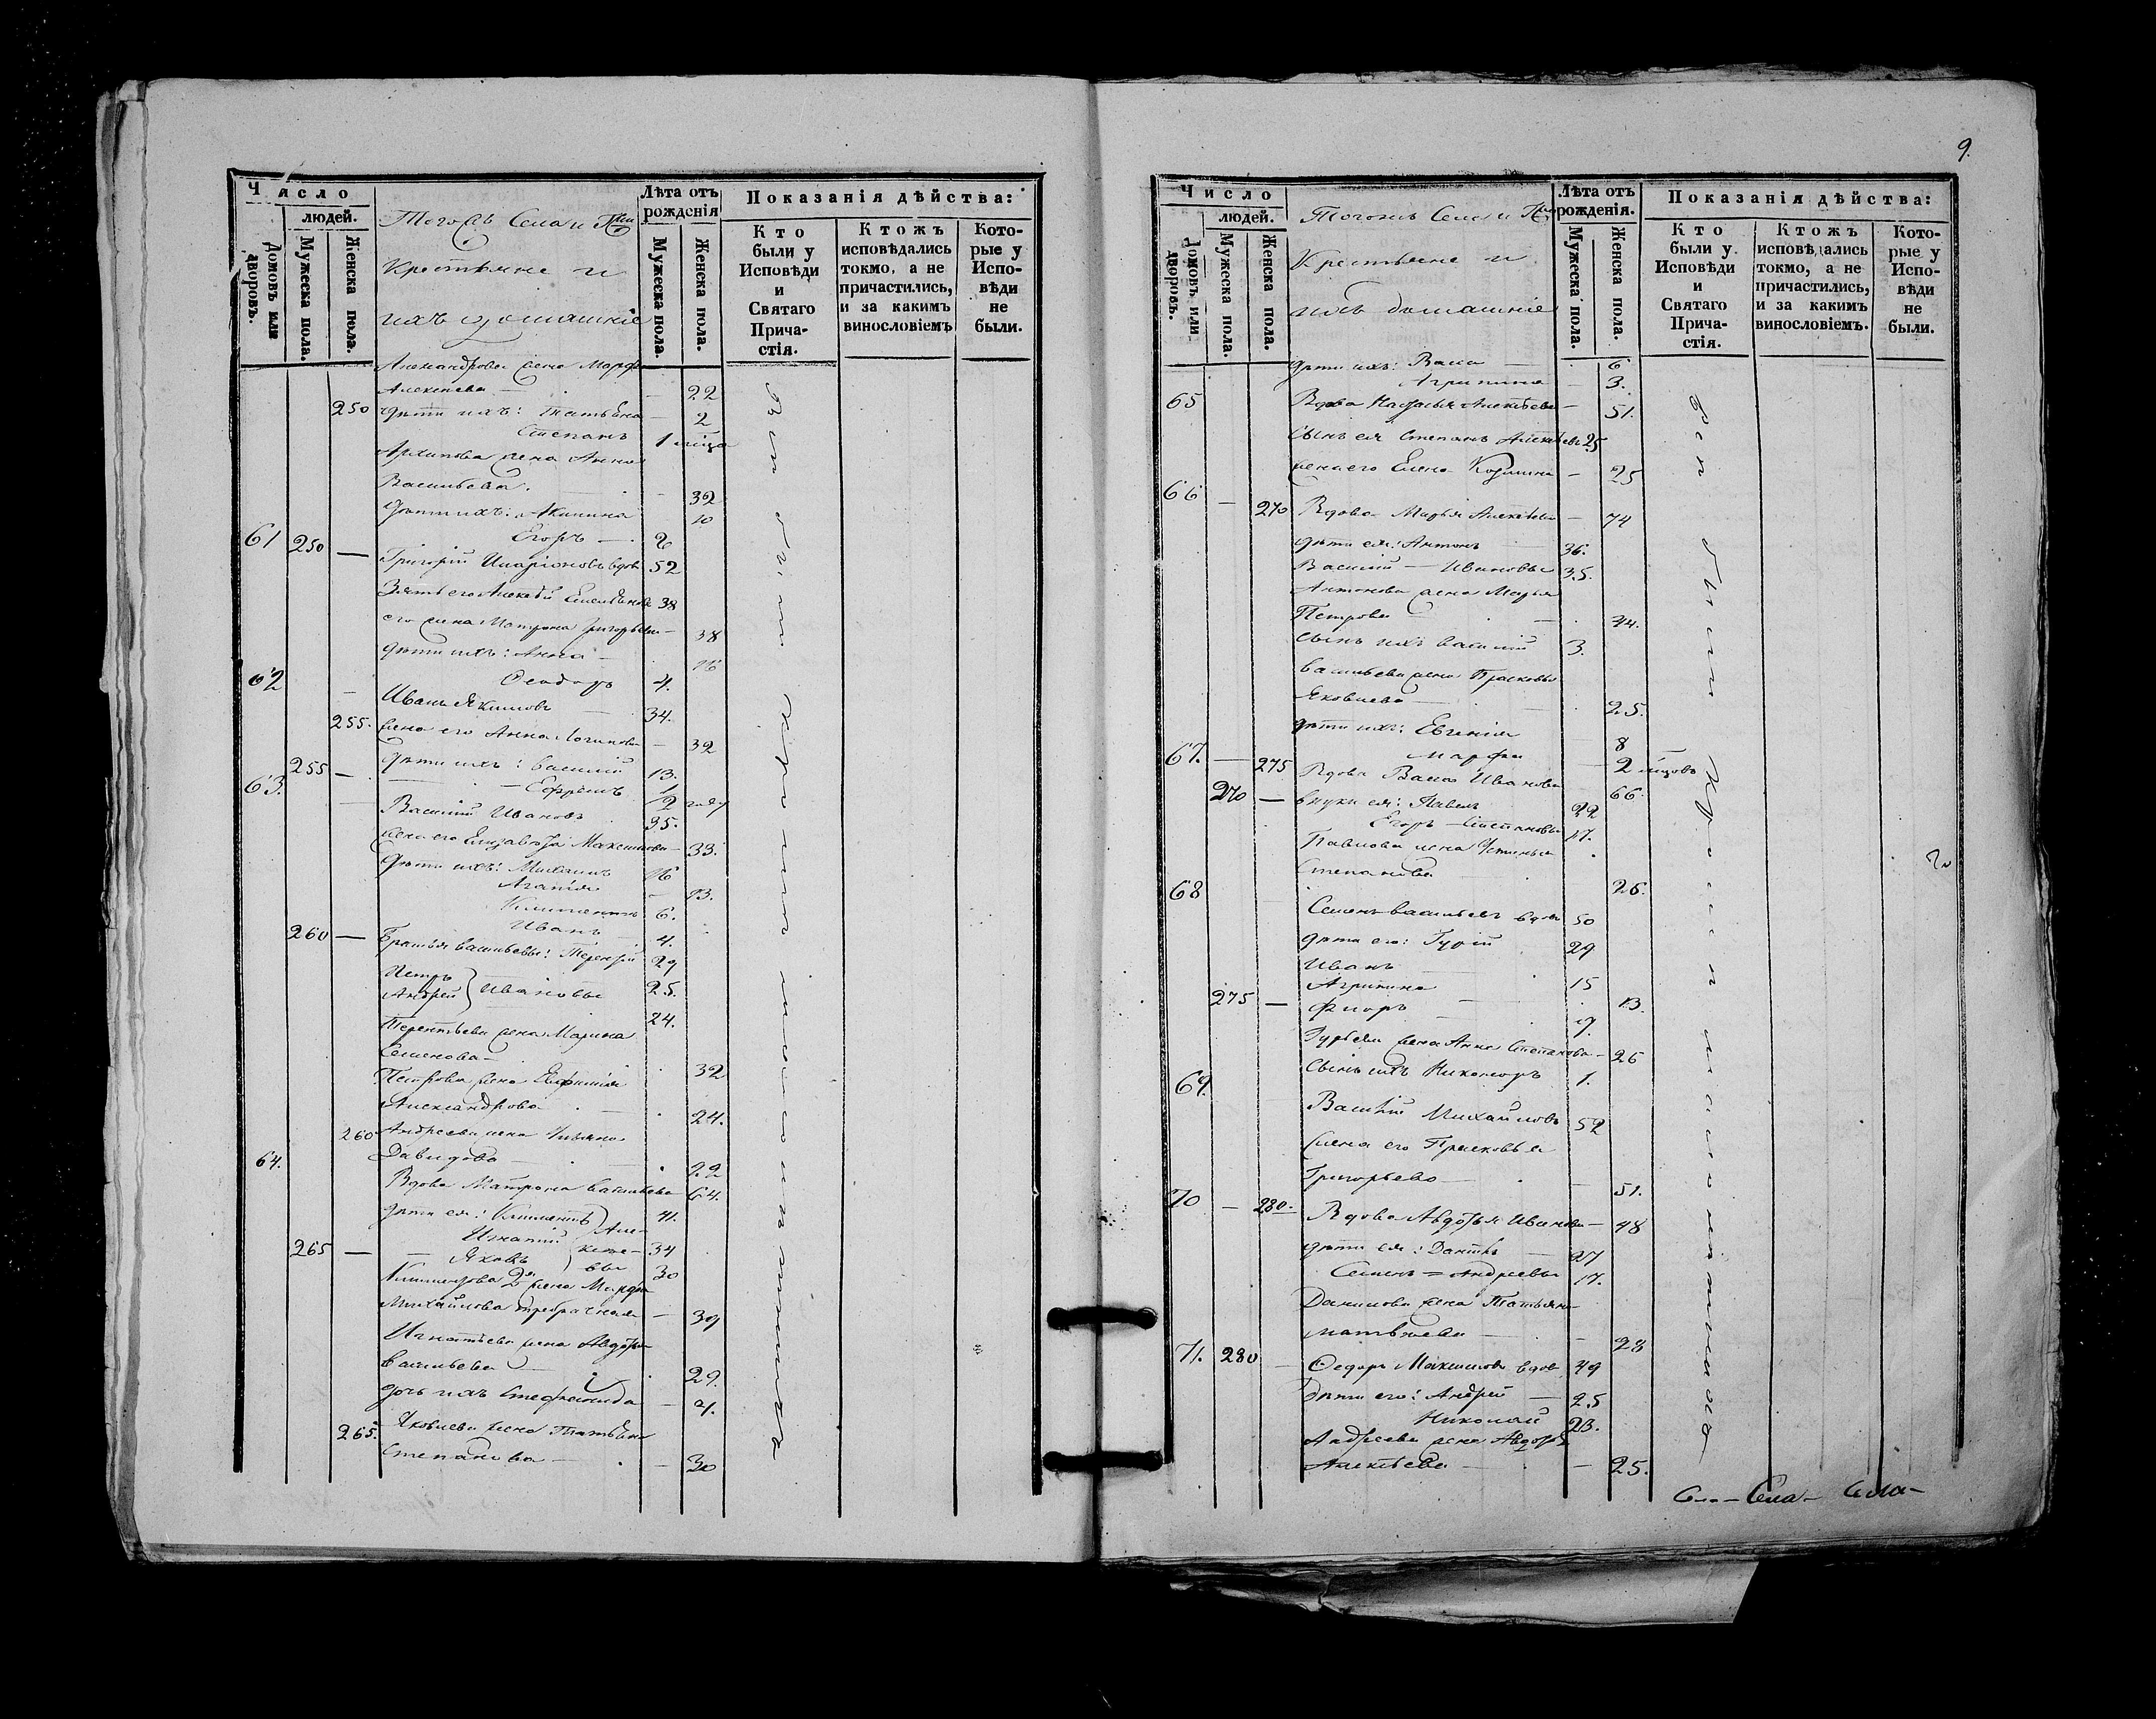 Число
людей.
Домовъ или дворовъ.
Мужеска пола.
Женска пола.
Тогожъ Села и
Крестьяне и
ихъ домашніе
Лѣта отъ рожденія
Мужеска пола.
Женска пола.
Показанія дѣйства:
Кто были у Исповѣди и Святаго Прича- стія.
Ктожъ исповѣдались токмо, а не причастились, и за какимъ винословіемъ
Кото- рые у Испо- вѣди не были.
Александрова жена Марфа
Алексеева — 22
250 дѣти ихъ: Татьяна — 2
Степанъ 1
Архипова жена Анна
Васильева. — 32
Дѣти ихъ: Акилина 10
Егоръ — 2
61 250 — Григорій Иларіоновъ вдов 52
Зять его Алексѣй Емельянов 38
его жена Матрона Григорьева — 38
дѣти ихъ: Анна — 16
Ѳеодоръ 4.
62 Иванъ Якимовъ 34.
255. жена его Анна Логинова — 32
255 — Дѣти ихъ: Василій 13.
Ефремъ 1/2 году
63. Василій Ивановъ 35.
жена его Елизавета Максимова — 33.
Дѣти ихъ: Михаилъ 16
Агапія — 13.
Климентъ 6.
Иванъ 4.
260 — Братья Васильевы: Терентій 29
Петръ 25.
Андрей } Ивановы 24.
Терентьева жена Марина
Семенова — 32
Петрова жена Евфимія
Александрова 24.
260 Андреева жена Ульяна
Давидова — 22
64. Вдова Матрона Васильева 64.
дѣти ея: Климентъ 41.
Игнатій 34
265 — Яковъ 30
Алексеевы
Климентова 2я жена Марфа
Михайлова — 39
Игнатьева жена Авдотья
Васильева 29.
дочь ихъ Стефанида — 4.
265. Яковлева жена Татьяна
Степанова — 30
Всѣ были у исповѣди
9.
Число
людей.
Домовъ или дворовъ.
Мужеска пола.
Женска пола.
Тогожъ Села и
Крестьяне и
ихъ домашніе
Лѣта отъ рожденія.
Мужеска пола.
Женска пола.
Показанія дѣйства:
Кто были у Исповѣди и Святаго Прича- стія.
Ктожъ исповѣдались токмо, а не причастились, и за какимъ винословіемъ.
Кото- рые у Испо- вѣди не были.
дѣти ихъ: Васса — 6
Агрипина — 3.
65 Вдова Наталья Алексѣева — 51.
Сынъ ея Степанъ Алексѣевъ 25
жена его Елена Козмина — 25
66 — 270 Вдова Марья Алексѣева — 74
дѣти ея: Антонъ 36.
Василій — Ивановы 35.
Антонова жена Марья
Петрова 44.
сынъ ихъ Василій 3.
Васильева жена Прасковья
Яковлева — 25.
дѣти ихъ: Евгенія 8
Марфа — 2
67. — 275 Вдова Васса Иванова 66.
270 — внуки ея: Павелъ 22
Егоръ — Степановы 17.
Павлова жена Устинья
Степанова 26.
68 Семенъ Васильевъ вдов 50
дѣти его: Гурій 29
Иванъ — 15
Агрипина 13.
275 — Флоръ 9.
Гурьева жена Анна Степанова — 26
Сынъ ихъ Никаноръ 1.
69. Василій Михайловъ 52
жена его Прасковья
Григорьева — 51.
70 — 280. Вдова Авдотья Иванова — 48
дѣти ея: 27
Семенъ = Андреевы 17.
Данилова жена Татьяна
Матвѣева — 28
71. 280 — Ѳедоръ Максимовъ вдов 49
дѣти его: Андрей — 25
Николай 23.
Андреева жена Авдотья
Алексѣева — — 25.
Села — Села —